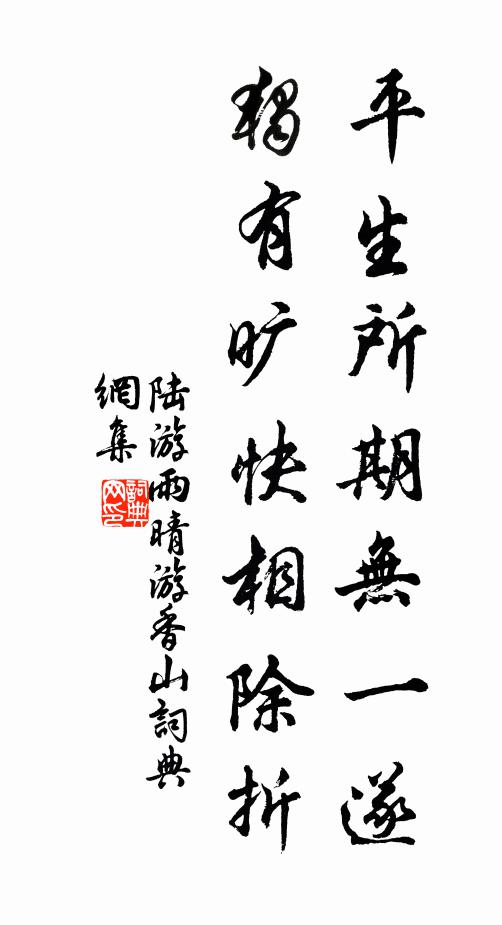 平生所期無一遂
獨有旷快相除折
陆游雨晴游香山詞典
網集
詞典
网印